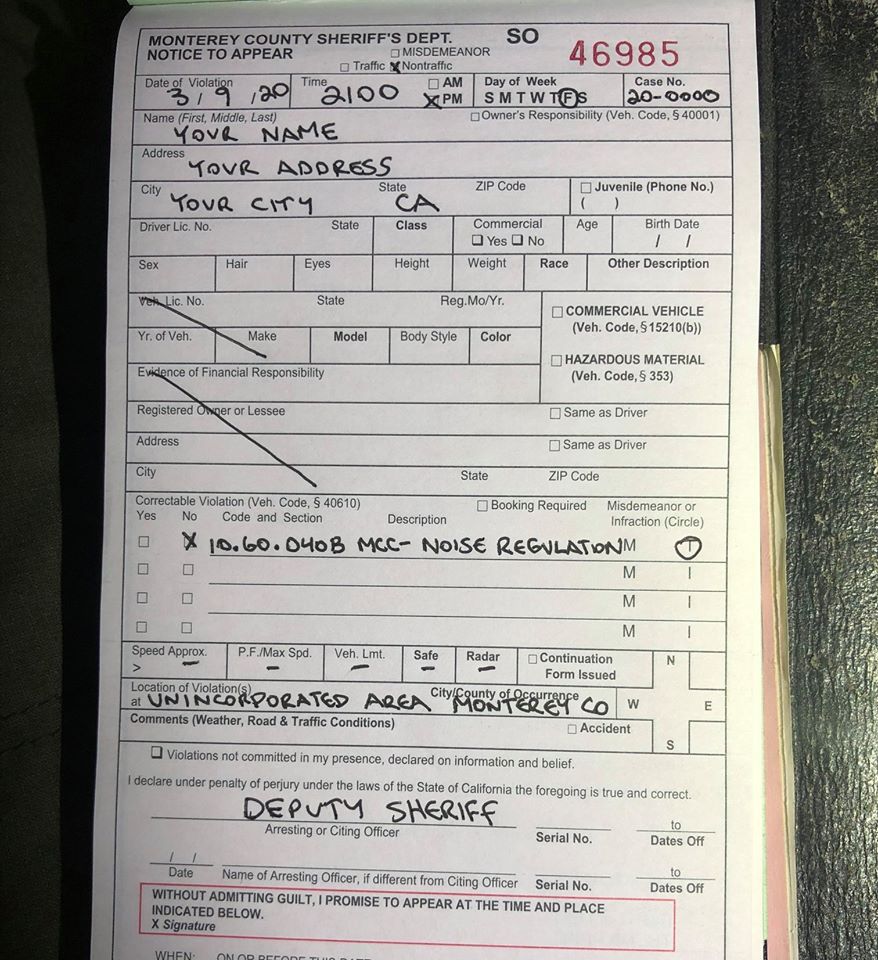 MONTEREY COUNTY SHERIFF'S DEPT. SO
NOTICE TO APPEAR ☐ MISDEMEANOR 46985
☐ Traffic ☒ Nontraffic
Date of Violation Time ☐ AM Day of Week Case No.
3/9/20 2100 ☒ PM S M T W T F S 20-0000
Name (First, Middle, Last) ☐ Owner's Responsibility (Veh. Code, § 40001)
YOUR NAME
Address
YOUR ADDRESS
City State ZIP Code ☐ Juvenile (Phone No.)
YOUR CITY CA ( )
Driver Lic. No. State Class Commercial Age Birth Date
☐ Yes ☐ No / /
Sex Hair Eyes Height Weight Race Other Description
Veh. Lic. No. State Reg.Mo/Yr.
☐ COMMERCIAL VEHICLE
(Veh. Code, § 15210(b))
Yr. of Veh. Make Model Body Style Color
☐ HAZARDOUS MATERIAL
(Veh. Code, § 353)
Evidence of Financial Responsibility
Registered Owner or Lessee ☐ Same as Driver
Address ☐ Same as Driver
City State ZIP Code
Correctable Violation (Veh. Code, § 40610) ☐ Booking Required Misdemeanor or
Yes No Code and Section Description Infraction (Circle)
☐ ☒ 10.60.040B MCC- NOISE REGULATION M I
☐ ☐ M I
☐ ☐ M I
☐ ☐ M I
Speed Approx. P.F./Max Spd. Veh. Lmt. Safe Radar ☐ Continuation N
> – – – – – Form Issued
Location of Violation(s) City/County of Occurrence
at UNINCORPORATED AREA MONTEREY CO W E
Comments (Weather, Road & Traffic Conditions) ☐ Accident
S
☐ Violations not committed in my presence, declared on information and belief.
I declare under penalty of perjury under the laws of the State of California the foregoing is true and correct.
DEPUTY SHERIFF to
Arresting or Citing Officer Serial No. Dates Off
/ / to
Date Name of Arresting Officer, if different from Citing Officer Serial No. Dates Off
WITHOUT ADMITTING GUILT, I PROMISE TO APPEAR AT THE TIME AND PLACE
INDICATED BELOW.
X Signature
WHEN: ON OR BEFORE THIS DATE